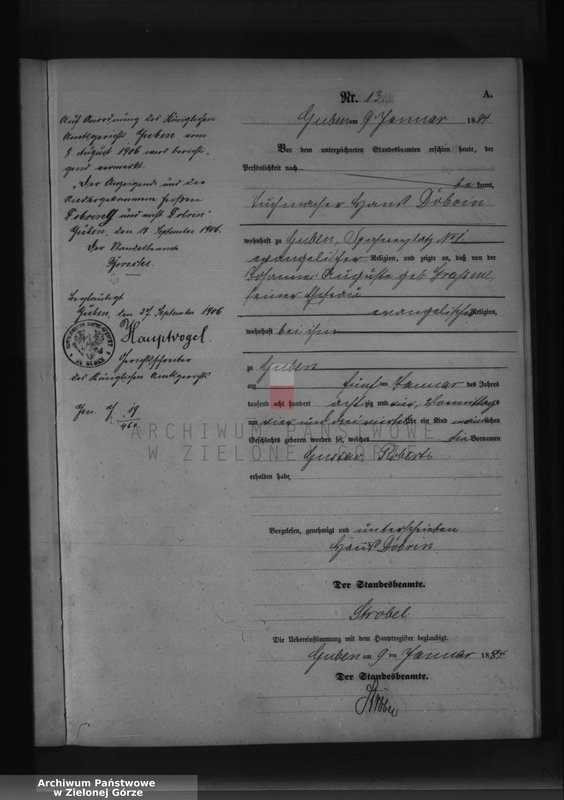 Nr. 13.
A.
Guben am 9 Januar 1884
Vor dem unterzeichneten Standesbeamten erschien heute, der
Persönlichkeit nach
bekannt,
Tuchmacher Hans Döbrin
wohnhaft zu Guben, N. 1.
evangelischer Religion, und zeigte an, daß von der
Johanne Auguste geb.
seiner Ehefrau
evangelischer Religion,
wohnhaft bei ihm
zu Guben
am fünften Januar des Jahres
tausend acht hundert achtzig und vier, Vormittags
um vier und drei viertel Uhr ein Kind männlichen
Geschlechts geboren worden sei, welches die Vornamen
Gustav Robert
erhalten habe.
Vorgelesen, genehmigt und unterschrieben
Hans Döbrin
Der Standesbeamte.
Strobel
Die Uebereinstimmung mit dem Hauptregister beglaubigt.
Guben am 9 ten Januar 1884
Der Standesbeamte.
Auf Anordnung des Königlichen
Amtsgerichts Guben vom
5. August 1906 wird berichti-
gend vermerkt:
Der Anzeigende und die
heißen
und nicht
Guben, den 18. September 1906.
Der Standesbeamte
Beglaubigt
Guben, den 27. September 1906
Hauptvogel.
Gerichtsschreiber
des Königlichen Amtsgerichts
ARCHIWUM PAŃSTWOWE
W ZIELONEJ GÓRZE
Archiwum Państwowe
w Zielonej Górze